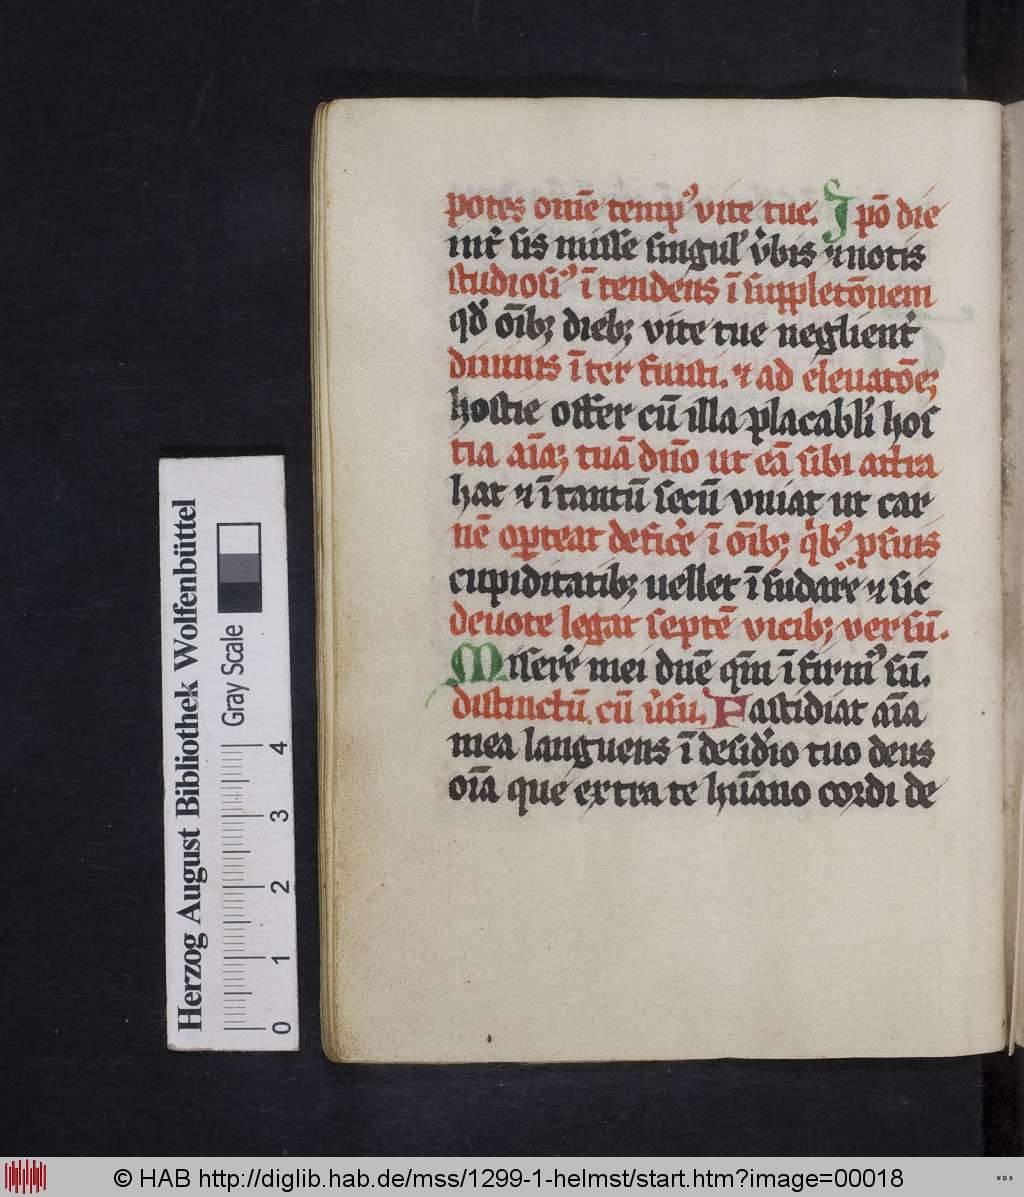 potes om̄e temp⁹ vite tue. Ipō die
int̉ sis misse singul̉ v̉bis ⁊ notis
studiosi⁹ ī tendens ī suppletōnem
qd̉ oīb; dieb; vite tue neglient̉
diuinis ī ter fuisti. ⁊ ad eleuatōē;
hostie offer cū illa placabl̉i hos
tia aīā; tuā dn̄o ut eā sibi attra
hat ⁊ ī tantū secū vniat ut car
nē oporteat defic̉e ī oīb; q̉b⁹ p̱suis
cupiditatib; uellet ī sudare ⁊ sic
deuote legat septē vicib; versū.
Miser̉e mei dn̄e qm̄ ī firm⁹ sū.
distinctū cū v̉su. Fastidiat aīa
mea languens ī desid̉io tuo deus
oīa que extra te hūano cordi de
Herzog August Bibliothek Wolfenbüttel
Gray Scale
0 1 2 3 4
© HAB http://diglib.hab.de/mss/1299-1-helmst/start.htm?image=00018